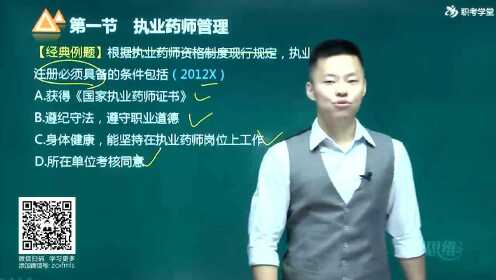 职考学堂
第一节 执业药师管理
【经典例题】根据执业药师资格制度现行规定，执业
注册必须具备的条件包括（2012X）
A.获得《国家执业药师证书》
B.遵纪守法，遵守职业道德
C.身体健康，能坚持在执业药师岗位上工作
D.所在单位考核同意
微信扫码 学习更多